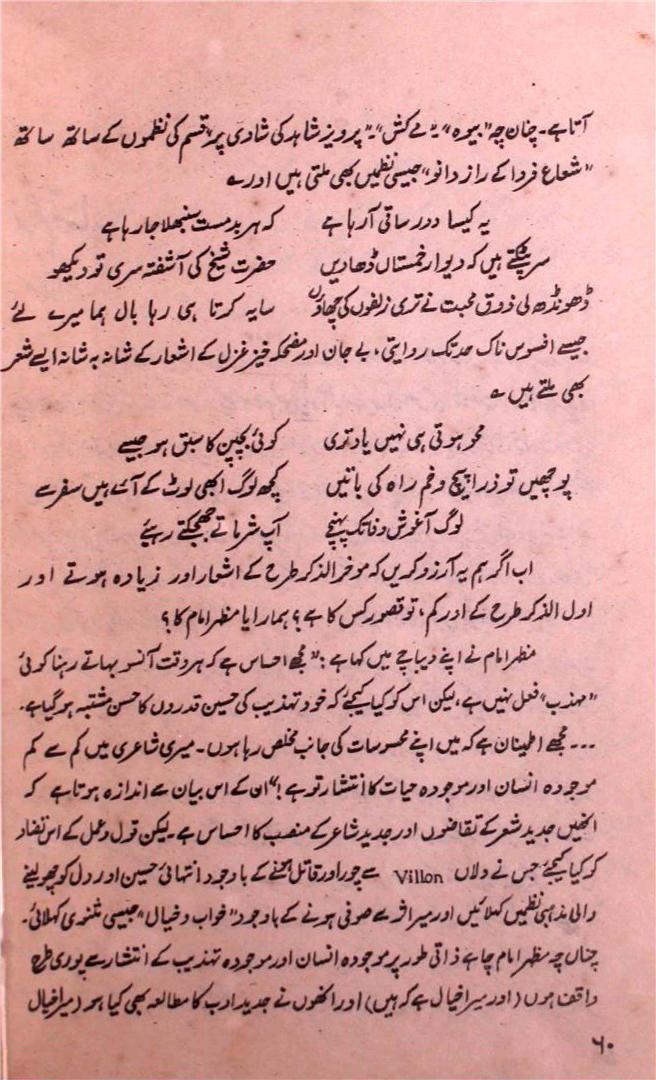 آتا ہے۔ چناں چہ "بیوہ"۔ "مے کش"۔ "پرویز شاہد کی شادی پر" قسم کی نظموں کے ساتھ ساتھ
"شعاع فردا کے راز دانو" جیسی نظمیں بھی ملتی ہیں اور ے
یہ کیسا دور ساقی آرہا ہے کہ ہر بدمست سنبھلا جا رہا ہے
سر پٹکتے ہیں کہ دیوار خمستاں ڈھادیں حضرت شیخ کی آشفتہ سری تو دیکھو
ڈھونڈھ لی ذوق محبت نے تری زلفوں کی چھاؤں سایہ کرتا ہی رہا بال ہما میرے لئے
جیسے افسوس ناک حد تک روایتی، بے جان اور مضحکہ خیز غزل کے اشعار کے شانہ بہ شانہ ایسے شعر
بھی ملتے ہیں ے
محو ہوتی ہی نہیں یاد تری کوئی بچپن کا سبق ہو جیسے
پوچھیں تو ذرا پیچ و خم راہ کی باتیں کچھ لوگ ابھی لوٹ کے آئے ہیں سفر سے
لوگ آغوش وفا تک پہنچے آپ شرماتے جھجکتے رہیئے
اب اگر ہم یہ آرزو کریں کہ موخر الذکر طرح کے اشعار اور زیادہ ہوتے اور
اول الذکر طرح کے اور کم، تو قصور کس کا ہے؟ ہمارا یا مظہر امام کا؟
مظہر امام نے اپنے دیباچے میں کہا ہے: "مجھے احساس ہے کہ ہر وقت آنسو بہاتے رہنا کوئی
"مہذب" فعل نہیں ہے، لیکن اس کو کیا کیجئے کہ خود تہذیب کی حسین قدروں کا حسن مشتبہ ہو گیا ہے۔
... مجھے اطمینان ہے کہ میں اپنے محسوسات کی جانب مخلص رہا ہوں۔ میری شاعری میں کم سے کم
موجودہ انسان اور موجودہ حیات کا انتشار تو ہے!" ان کے اس بیان سے اندازہ ہوتا ہے کہ
انھیں جدید شعر کے تقاضوں اور جدید شاعر کے منصب کا احساس ہے۔ لیکن قول و عمل کے اس تضاد
کو کیا کیجئے جس نے ولاں Villon سے چور اور قاتل ہونے کے باوجود انتہائی حسین اور دل کو چھو لینے
والی مذہبی نظمیں کہلائیں اور میر اثر سے صوفی ہونے کے باوجود "خواب و خیال" جیسی مثنوی کہلائی۔
چناں چہ مظہر امام چاہے ذاتی طور پر موجودہ انسان اور موجودہ تہذیب کے انتشار سے پوری طرح
واقف ہوں (اور میرا خیال ہے کہ ہیں) اور انھوں نے جدید ادب کا مطالعہ بھی کیا ہو (میرا خیال
۶۰